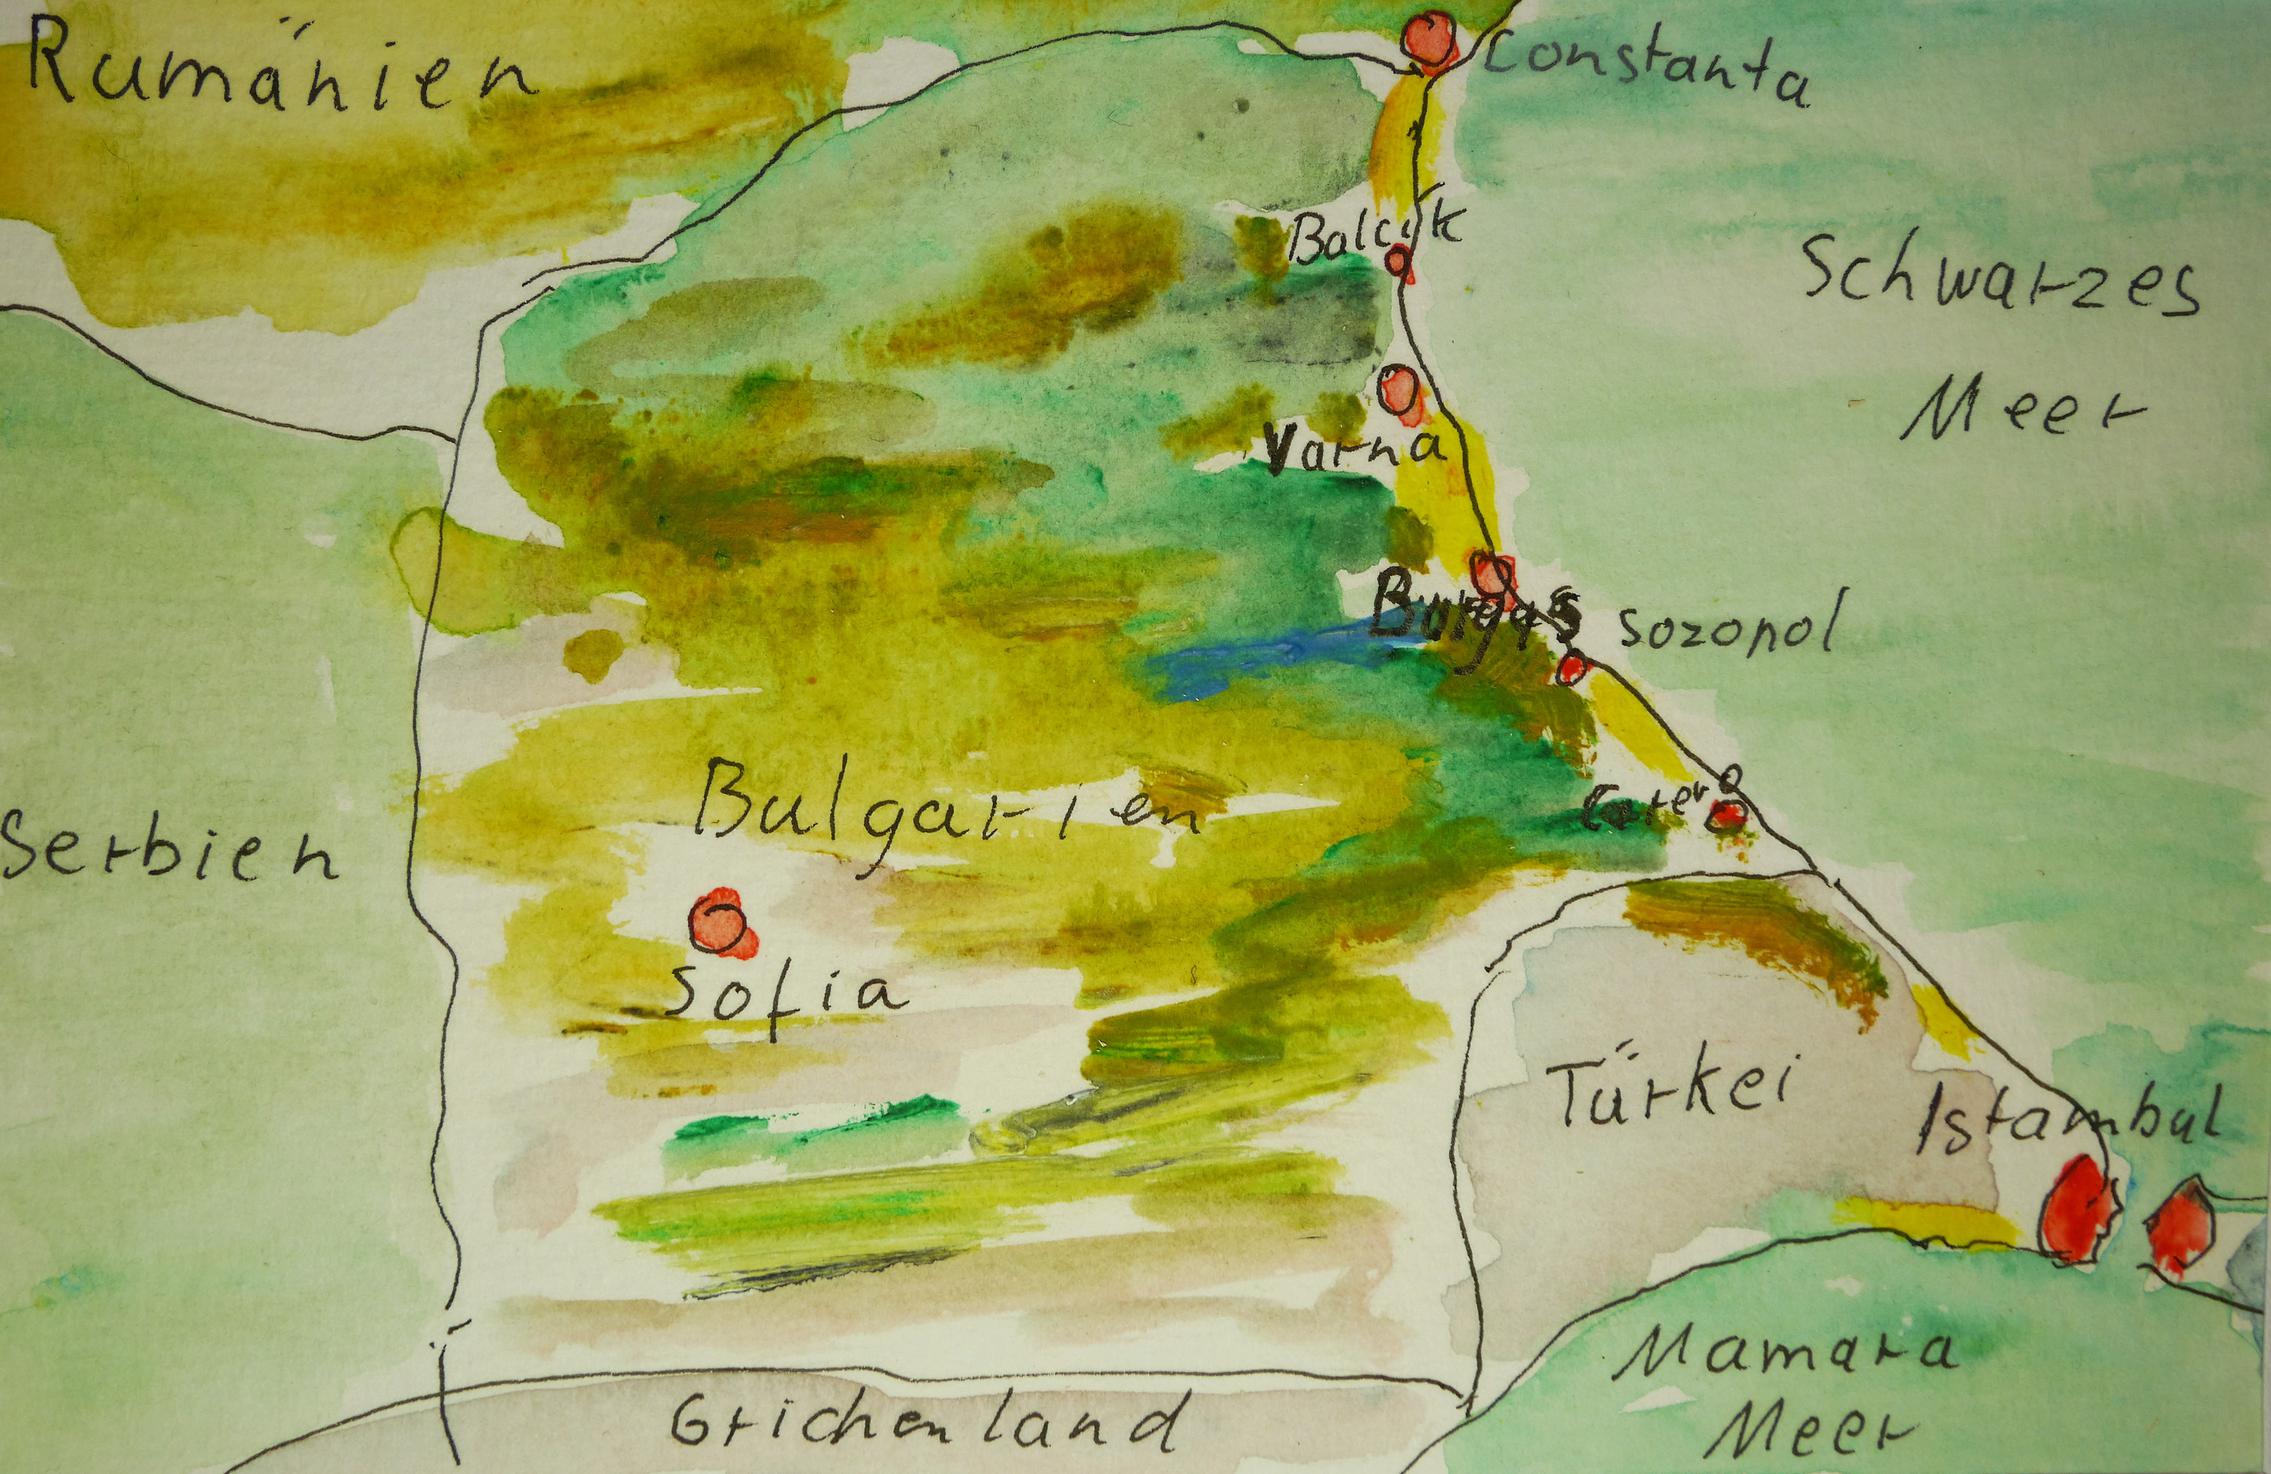 Rumänien
Constanta
Balcik
Schwarzes
Meer
Varna
Burgas
Sozopol
Bulgarien
Serbien
Sofia
Türkei
Istambul
Mamara
Meer
Grichenland